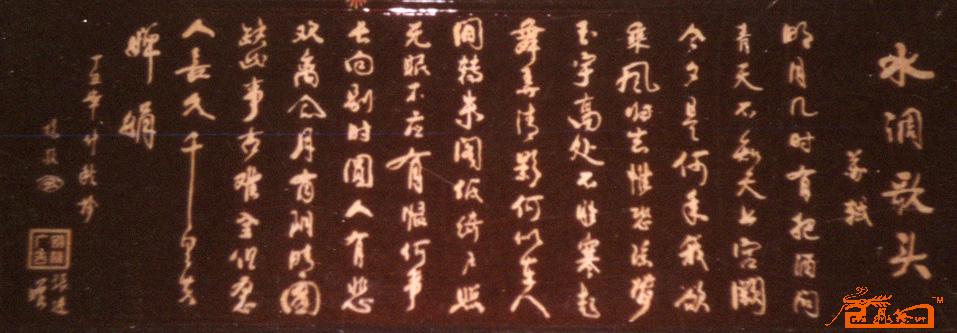 水调歌头
苏轼
明月几时有把酒问
青天不知天上宫阙
今夕是何年我欲
乘风归去惟恐琼楼
玉宇高处不胜寒起
舞弄清影何似在人
间转朱阁低绮户照
无眠不应有恨何事
长向别时圆人有悲
欢离合月有阴晴圆
缺此事古难全但愿
人长久千里共
婵娟
丁丑年